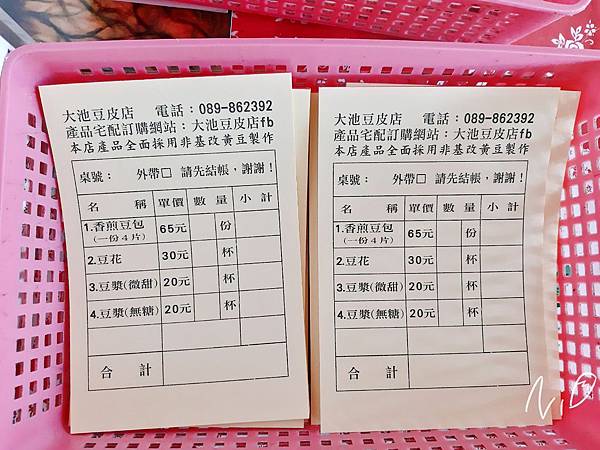 大池豆皮店 電話：089-862392
產品宅配訂購網站：大池豆皮店fb
本店產品全面採用非基改黃豆製作
桌號： 外帶□ 請先結帳，謝謝！
名 稱 單價 數 量 小 計
1.香煎豆包 65元 份
(一份4片)
2.豆花 30元 杯
3.豆漿(微甜) 20元 杯
4.豆漿(無糖) 20元 杯
合 計
大池豆皮店 電話：089-862392
產品宅配訂購網站：大池豆皮店fb
本店產品全面採用非基改黃豆製作
桌號： 外帶□ 請先結帳，謝謝！
名 稱 單價 數 量 小 計
1.香煎豆包 65元 份
(一份4片)
2.豆花 30元 杯
3.豆漿(微甜) 20元 杯
4.豆漿(無糖) 20元 杯
合 計